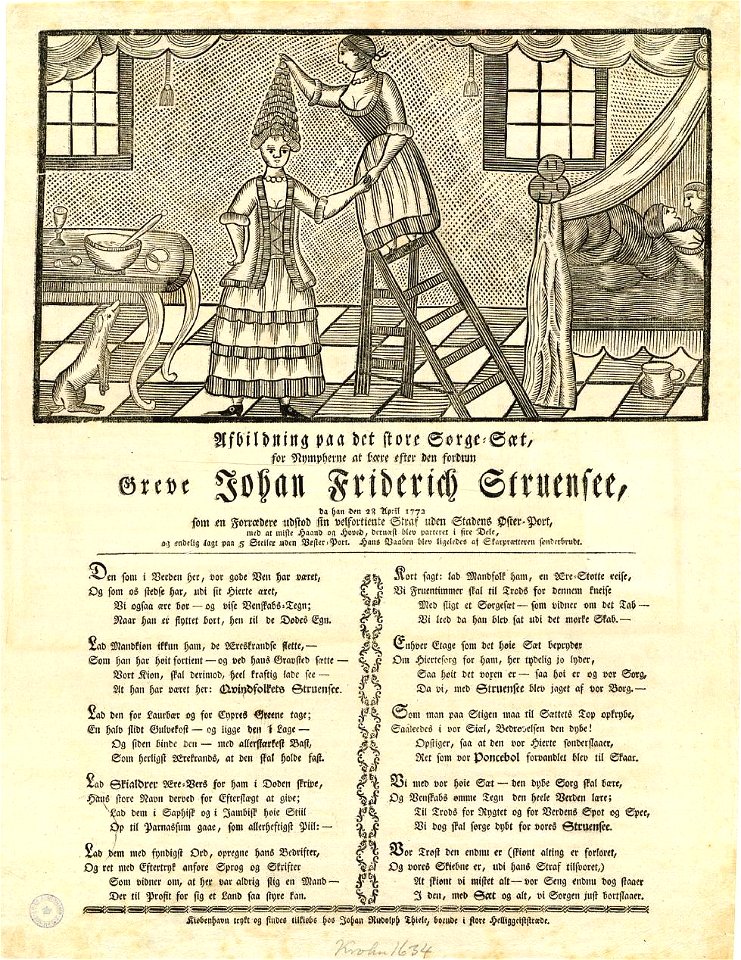 Afbildning paa det store Sorge-Sæt,
for Nympherne at bære efter den fordum
Greve Johan Friderich Struensee,
da han den 28 April 1772
som en Forrædere udstod sin velfortiente Straf uden Stadens Øster-Port,
med at miste Haand og Hoved, dernæst blev parteret i fire Dele,
og endelig lagt paa 5 Steiler uden Vester-Port. Hans Vaaben blev ligeledes af Skarpretteren sønderbrudt.
Den som i Verden her, vor gode Ven har været,
Og som os stedse har, udi sit Hierte æret,
Vi ogsaa ære bør — og vise Venskabs-Tegn;
Naar han er flyttet bort, hen til de Dødes Egn.
Lad Mandkiøn ikkun ham, de Æreskrandse flette, —
Som han har høit fortient — og ved hans Gravsted sætte —
Vort Kiøn, skal derimod, heel kraftig lade see —
At han har været her: Qvindfolkets Struensee.
Lad den for Laurbær og for Cypres Greene tage;
En halv slidt Gulvekost — og ligge den i Lage —
Og siden binde den — med allerstærkest Bast,
Som herligst Ærekrands, at den skal holde fast.
Lad Skialdrer Ære-Vers for ham i Døden skrive,
Hans store Navn derved for Efterslægt at give;
Lad dem i Saphisk og i Jambisk høie Stiil
Op til Parnassum gaae, som allerheftigst Piil: —
Lad dem med fyndigst Ord, opregne hans Bedrifter,
Og ret med Eftertryk anføre Sprog og Skrifter
Som vidner om, at her var aldrig slig en Mand —
Der til Profit for sig et Land saa styre kan.
Kort sagt: lad Mandfolk ham, en Ære-Støtte reise,
Vi Fruentimmer skal til Trods for dennem kneise
Med sligt et Sørgesæt — som vidner om det Tab —
Vi leed da han blev sat udi det mørke Skab. —
Enhver Etage som det høie Sæt bepryder
Om Hiertesorg for ham, her tydelig jo lyder,
Saa høit det voxen er — saa høi er og vor Sorg,
Da vi, med Struensee blev jaget af vor Borg. —
Som man paa Stigen maa til Sættets Top opkrybe,
Saaledes i vor Siæl, Bedrøvelsen den dybe!
Opstiger, saa at den vor Hierte sønderslaaer,
Ret som vor Poncebol forvandlet blev til Skaar.
Vi med vor høie Sæt — den dybe Sorg skal bære,
Og Venskabs ømme Tegn den heele Verden lære;
Til Trods for Rygtet og for Verdens Spot og Spee,
Vi dog skal sørge dybt for vores Struensee.
Vor Trøst den endnu er (skiønt alting er forloret,
Og vores Skiebne er, udi hans Straf tilsvoret,)
At skiønt vi mistet alt — vor Seng endnu dog staaer
I den, med Sæt og alt, vi Sorgen just bortslaaer.
Kiøbenhavn trykt og findes tilkiøbs hos Johan Rudolph Thiele, boende i store Helliggeiststræde.
Krohn 1634